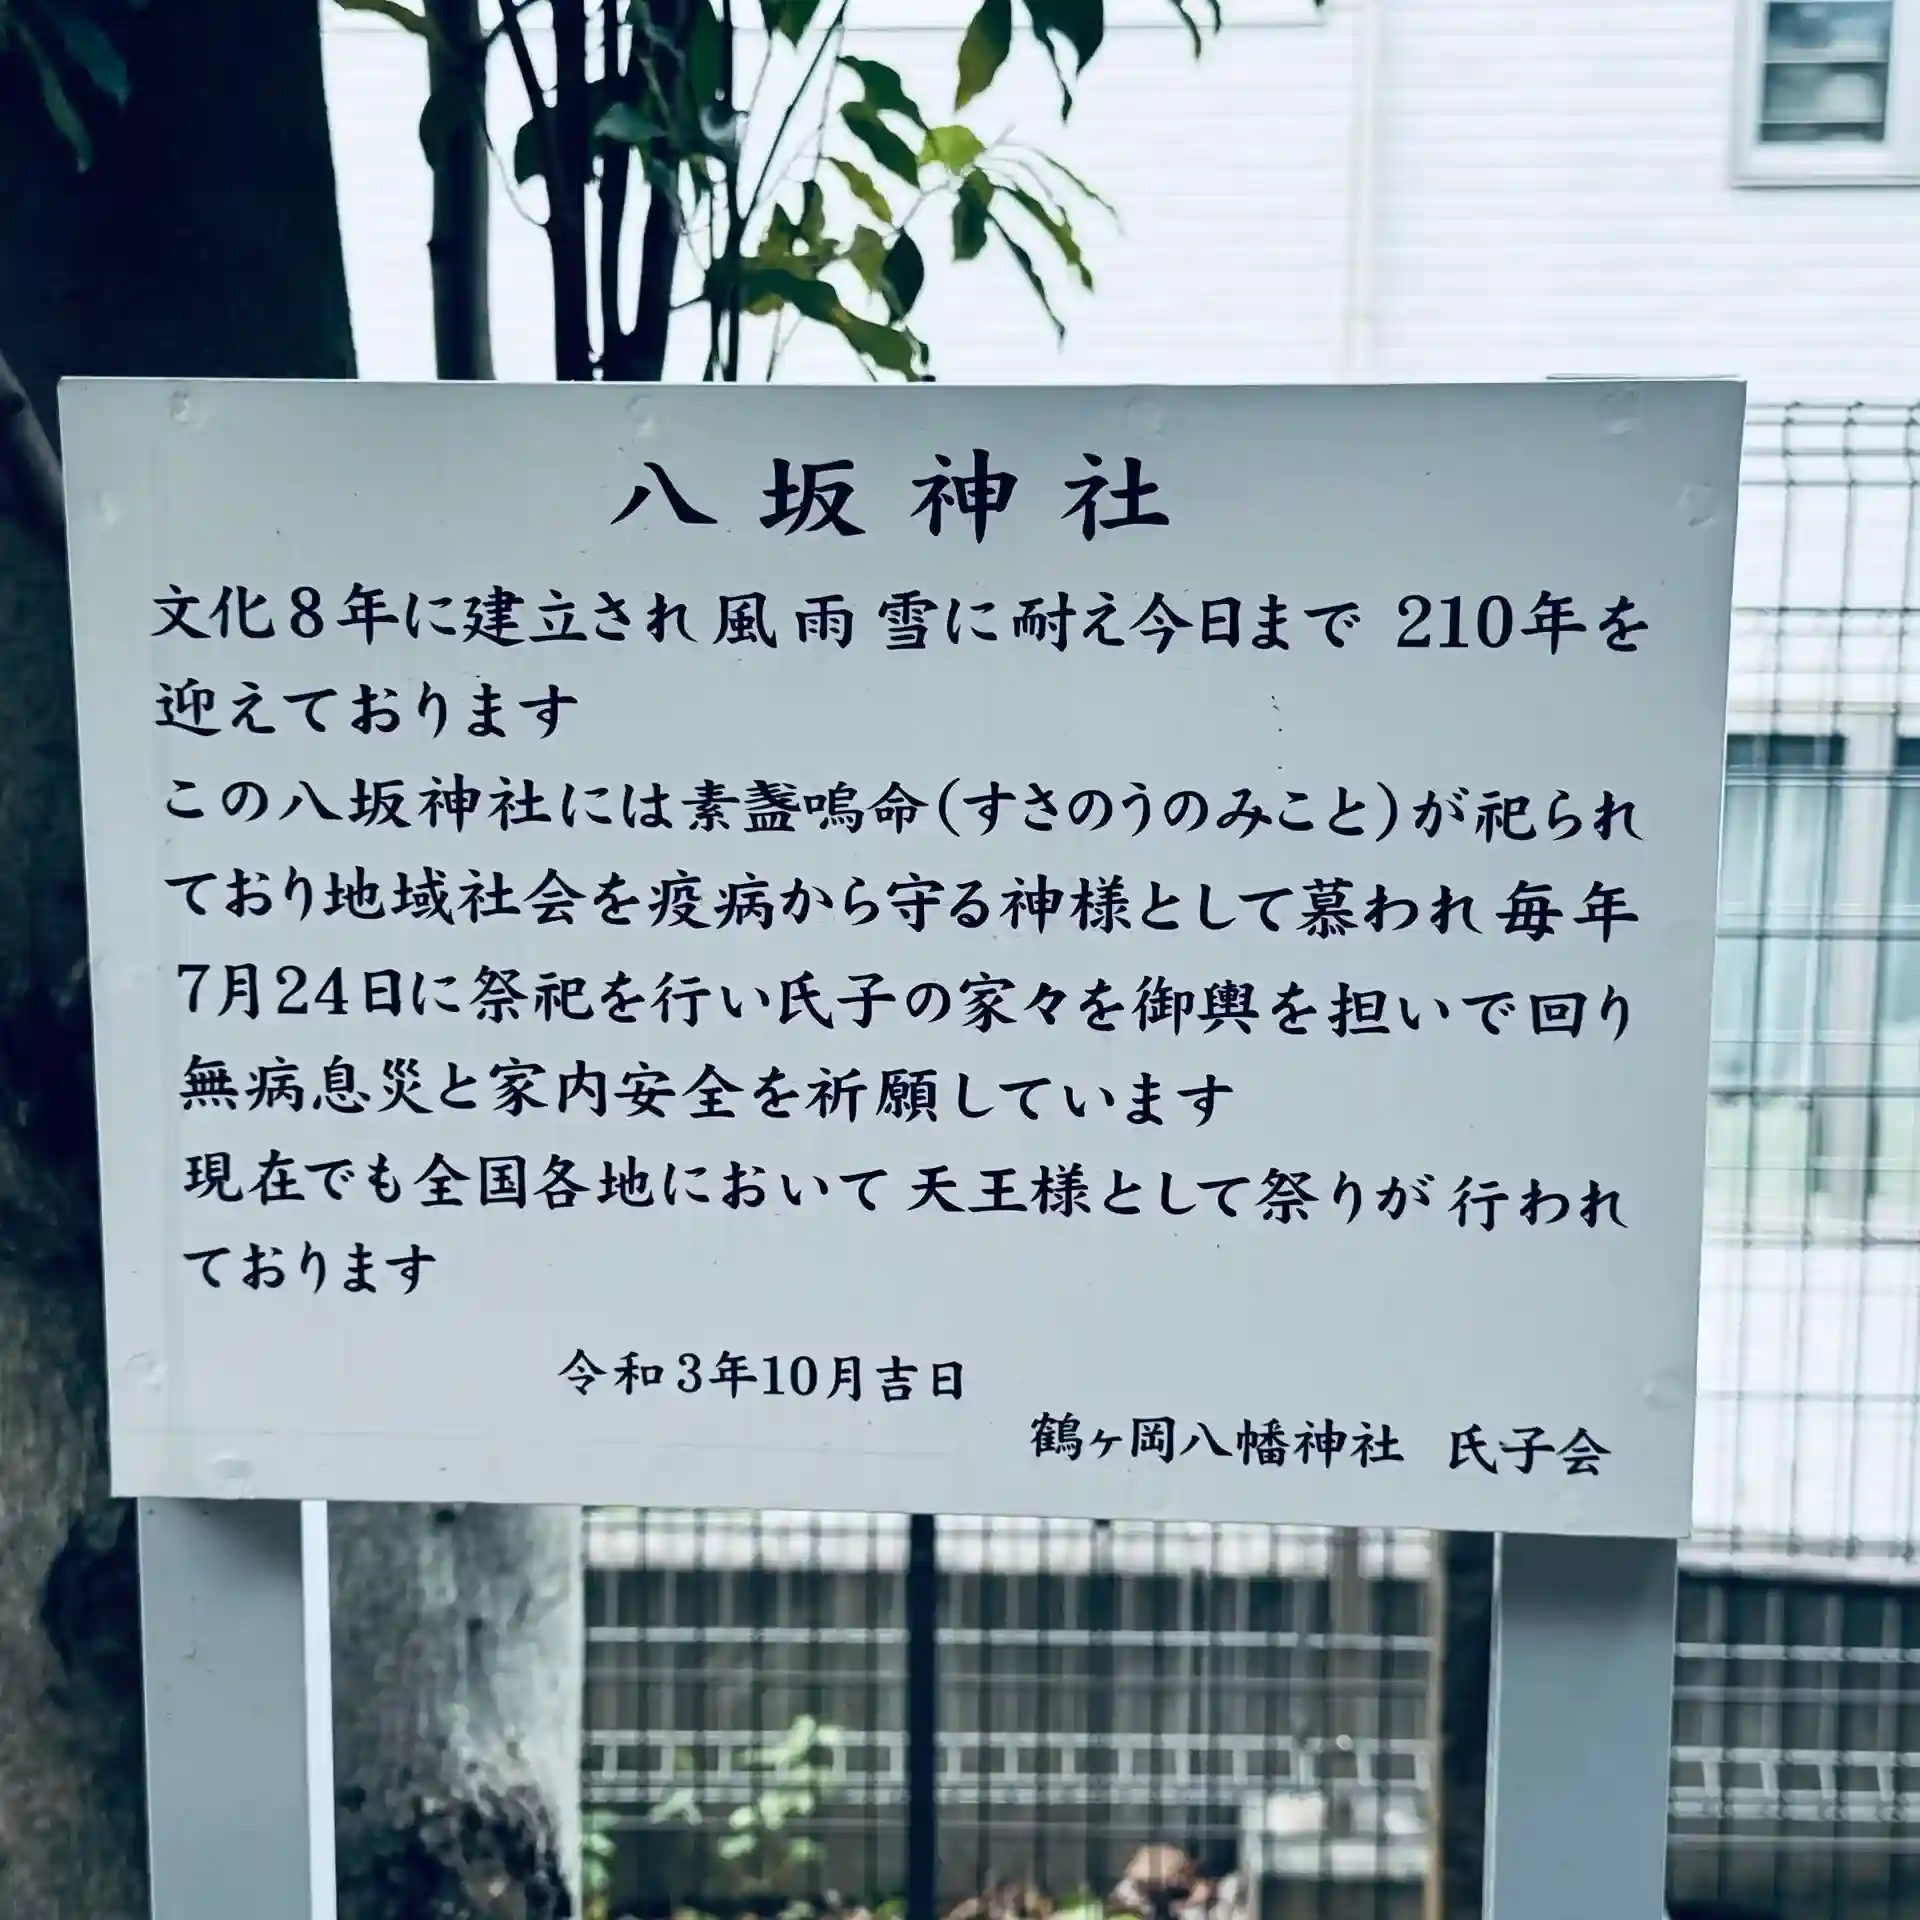 八坂神社
文化8年に建立され風雨雪に耐え今日まで 210年を
迎えております
この八坂神社には素盞嗚命(すさのうのみこと)が祀られ
ており地域社会を疫病から守る神様として慕われ毎年
7月24日に祭祀を行い氏子の家々を御輿を担いで回り
無病息災と家内安全を祈願しています
現在でも全国各地において天王様として祭りが行われ
ております
令和3年10月吉日
鶴ヶ岡八幡神社 氏子会